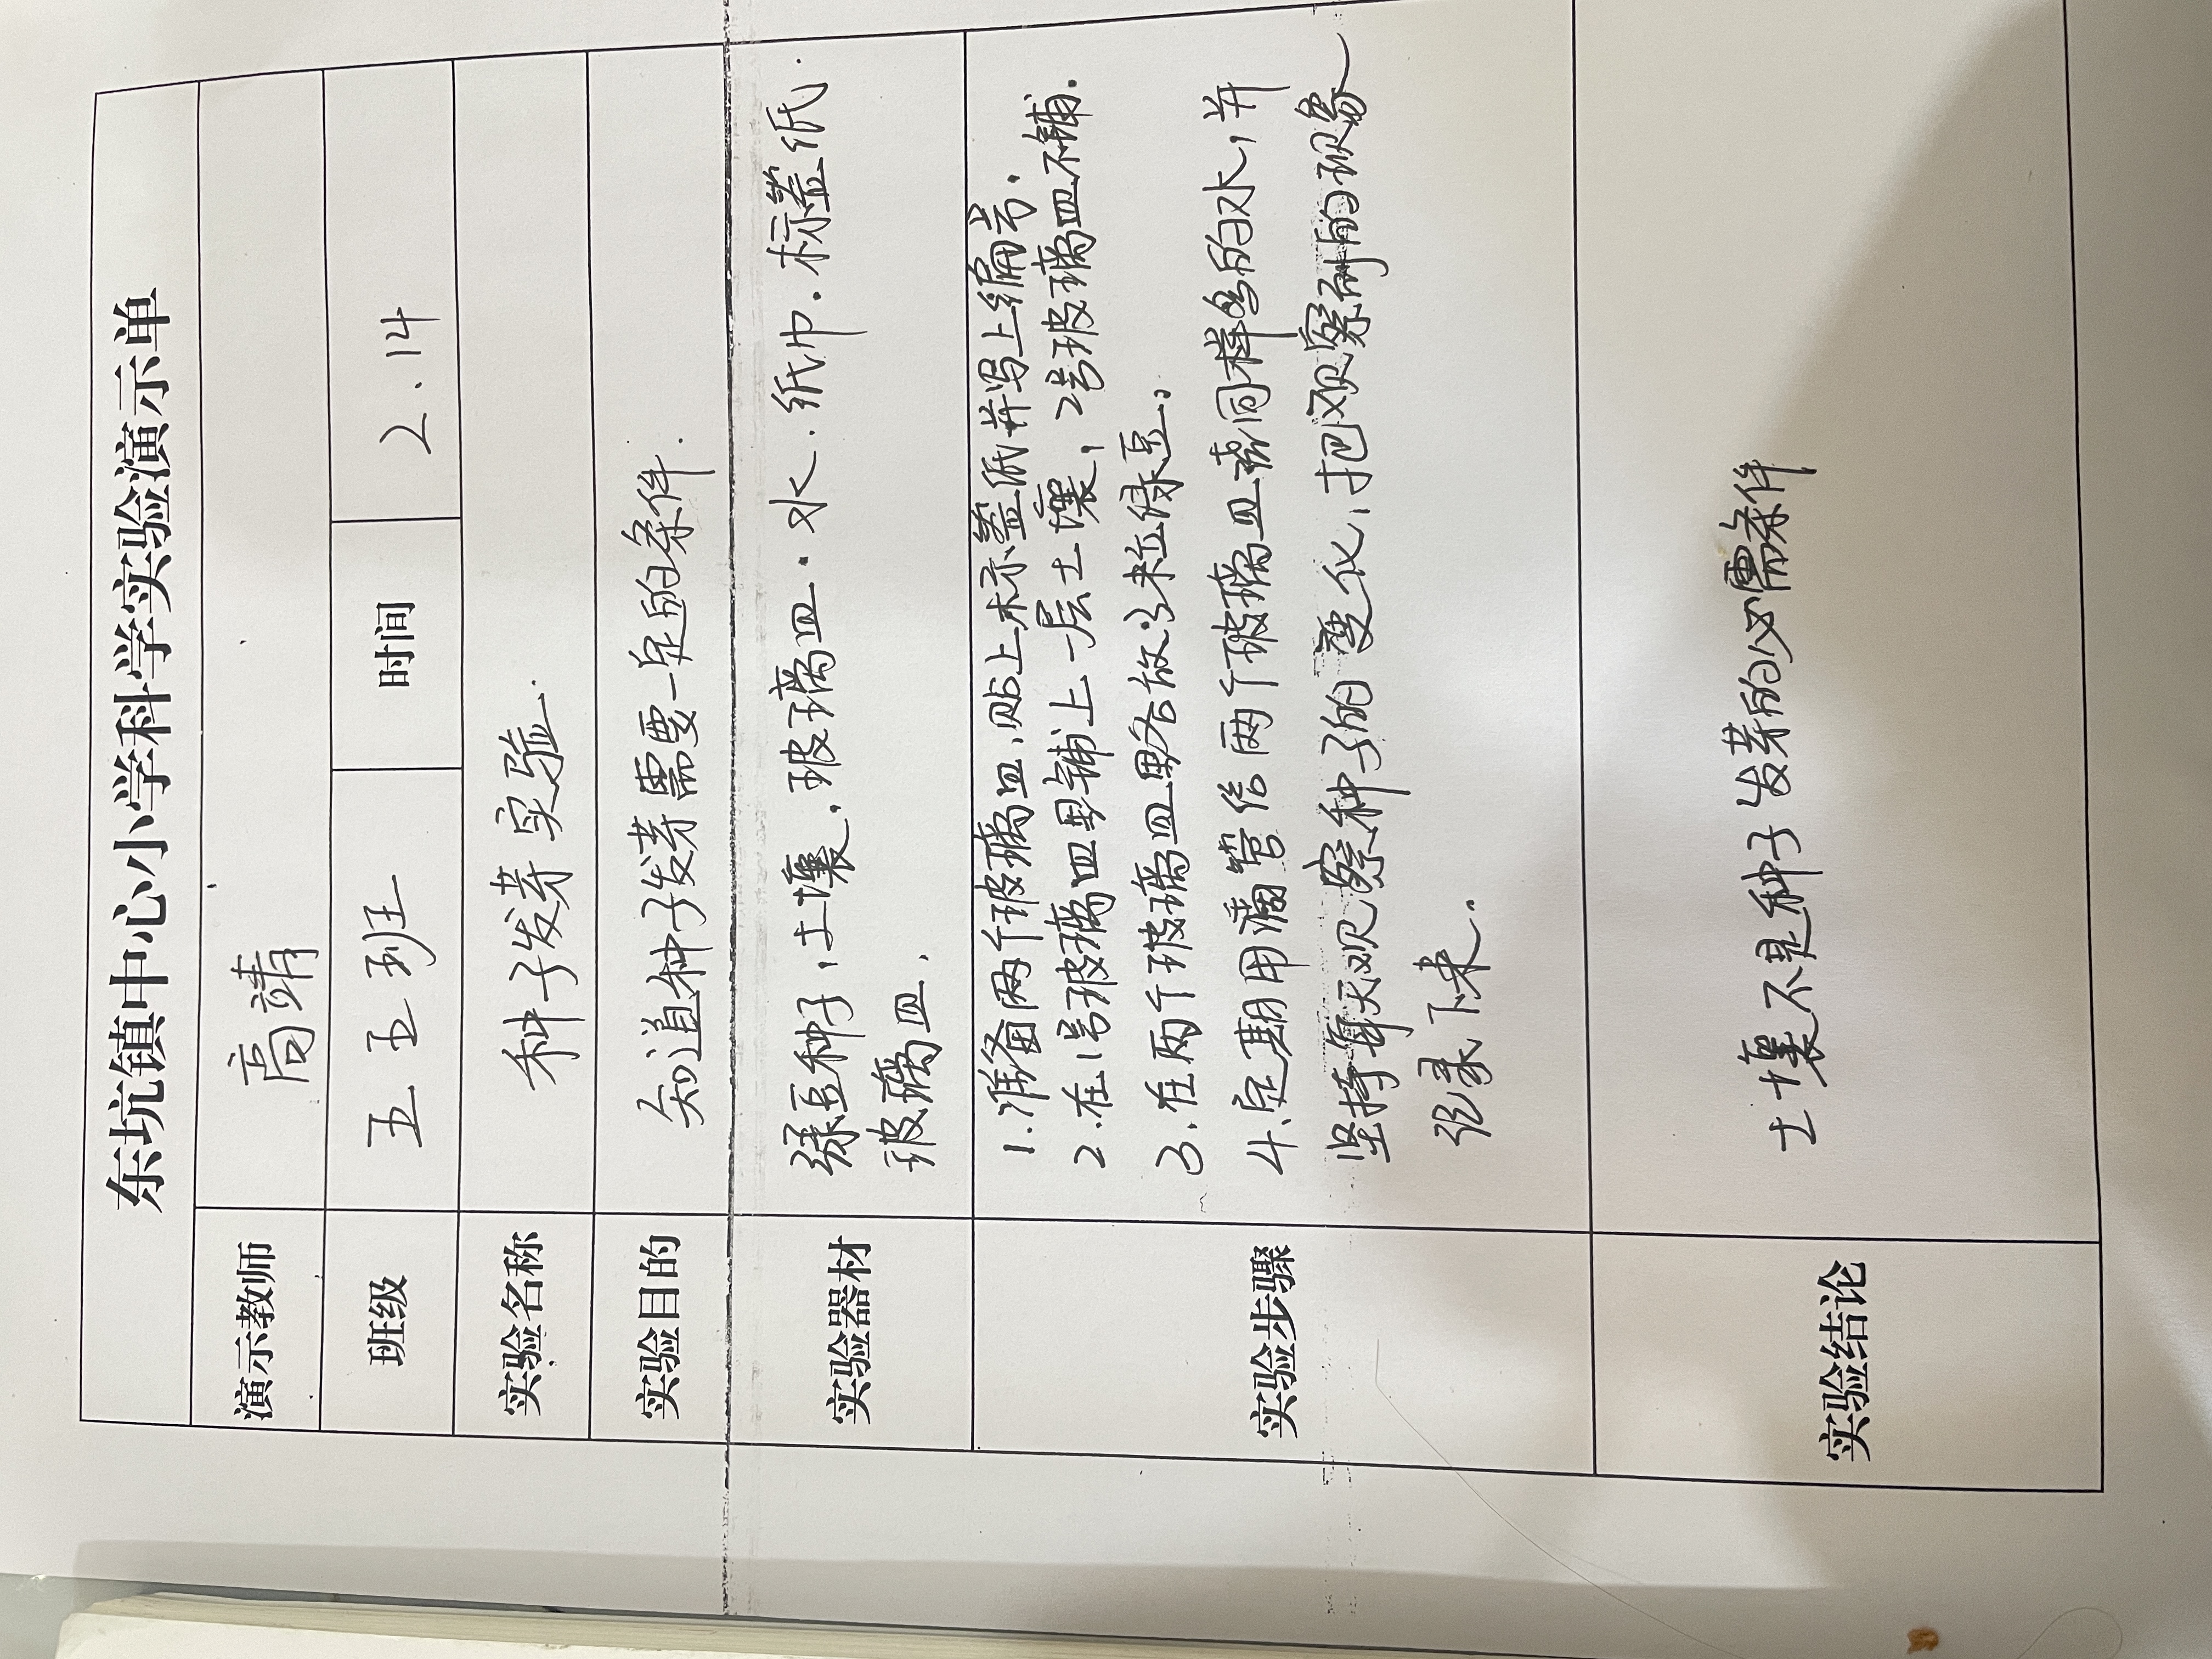 东坑镇中心小学科学实验演示单
演示教师 高靖
班级 五五班 时间 2.14
实验名称 种子发芽实验.
实验目的 知道种子发芽需要一定的条件.
实验器材 绿豆种子,土壤,玻璃皿.水.纸巾.标签纸.
玻璃皿.
实验步骤
1.准备两个玻璃皿,贴上标签纸并写上编号.
2.在1号玻璃皿里铺上一层土壤,2号玻璃皿不铺.
3.在两个玻璃皿里各放3粒绿豆。
4.定期用滴管给两个玻璃皿同样多的水,并
坚持每天观察种子的变化,把观察到的现象
记录下来.
实验结论 土壤不是种子发芽的必需条件